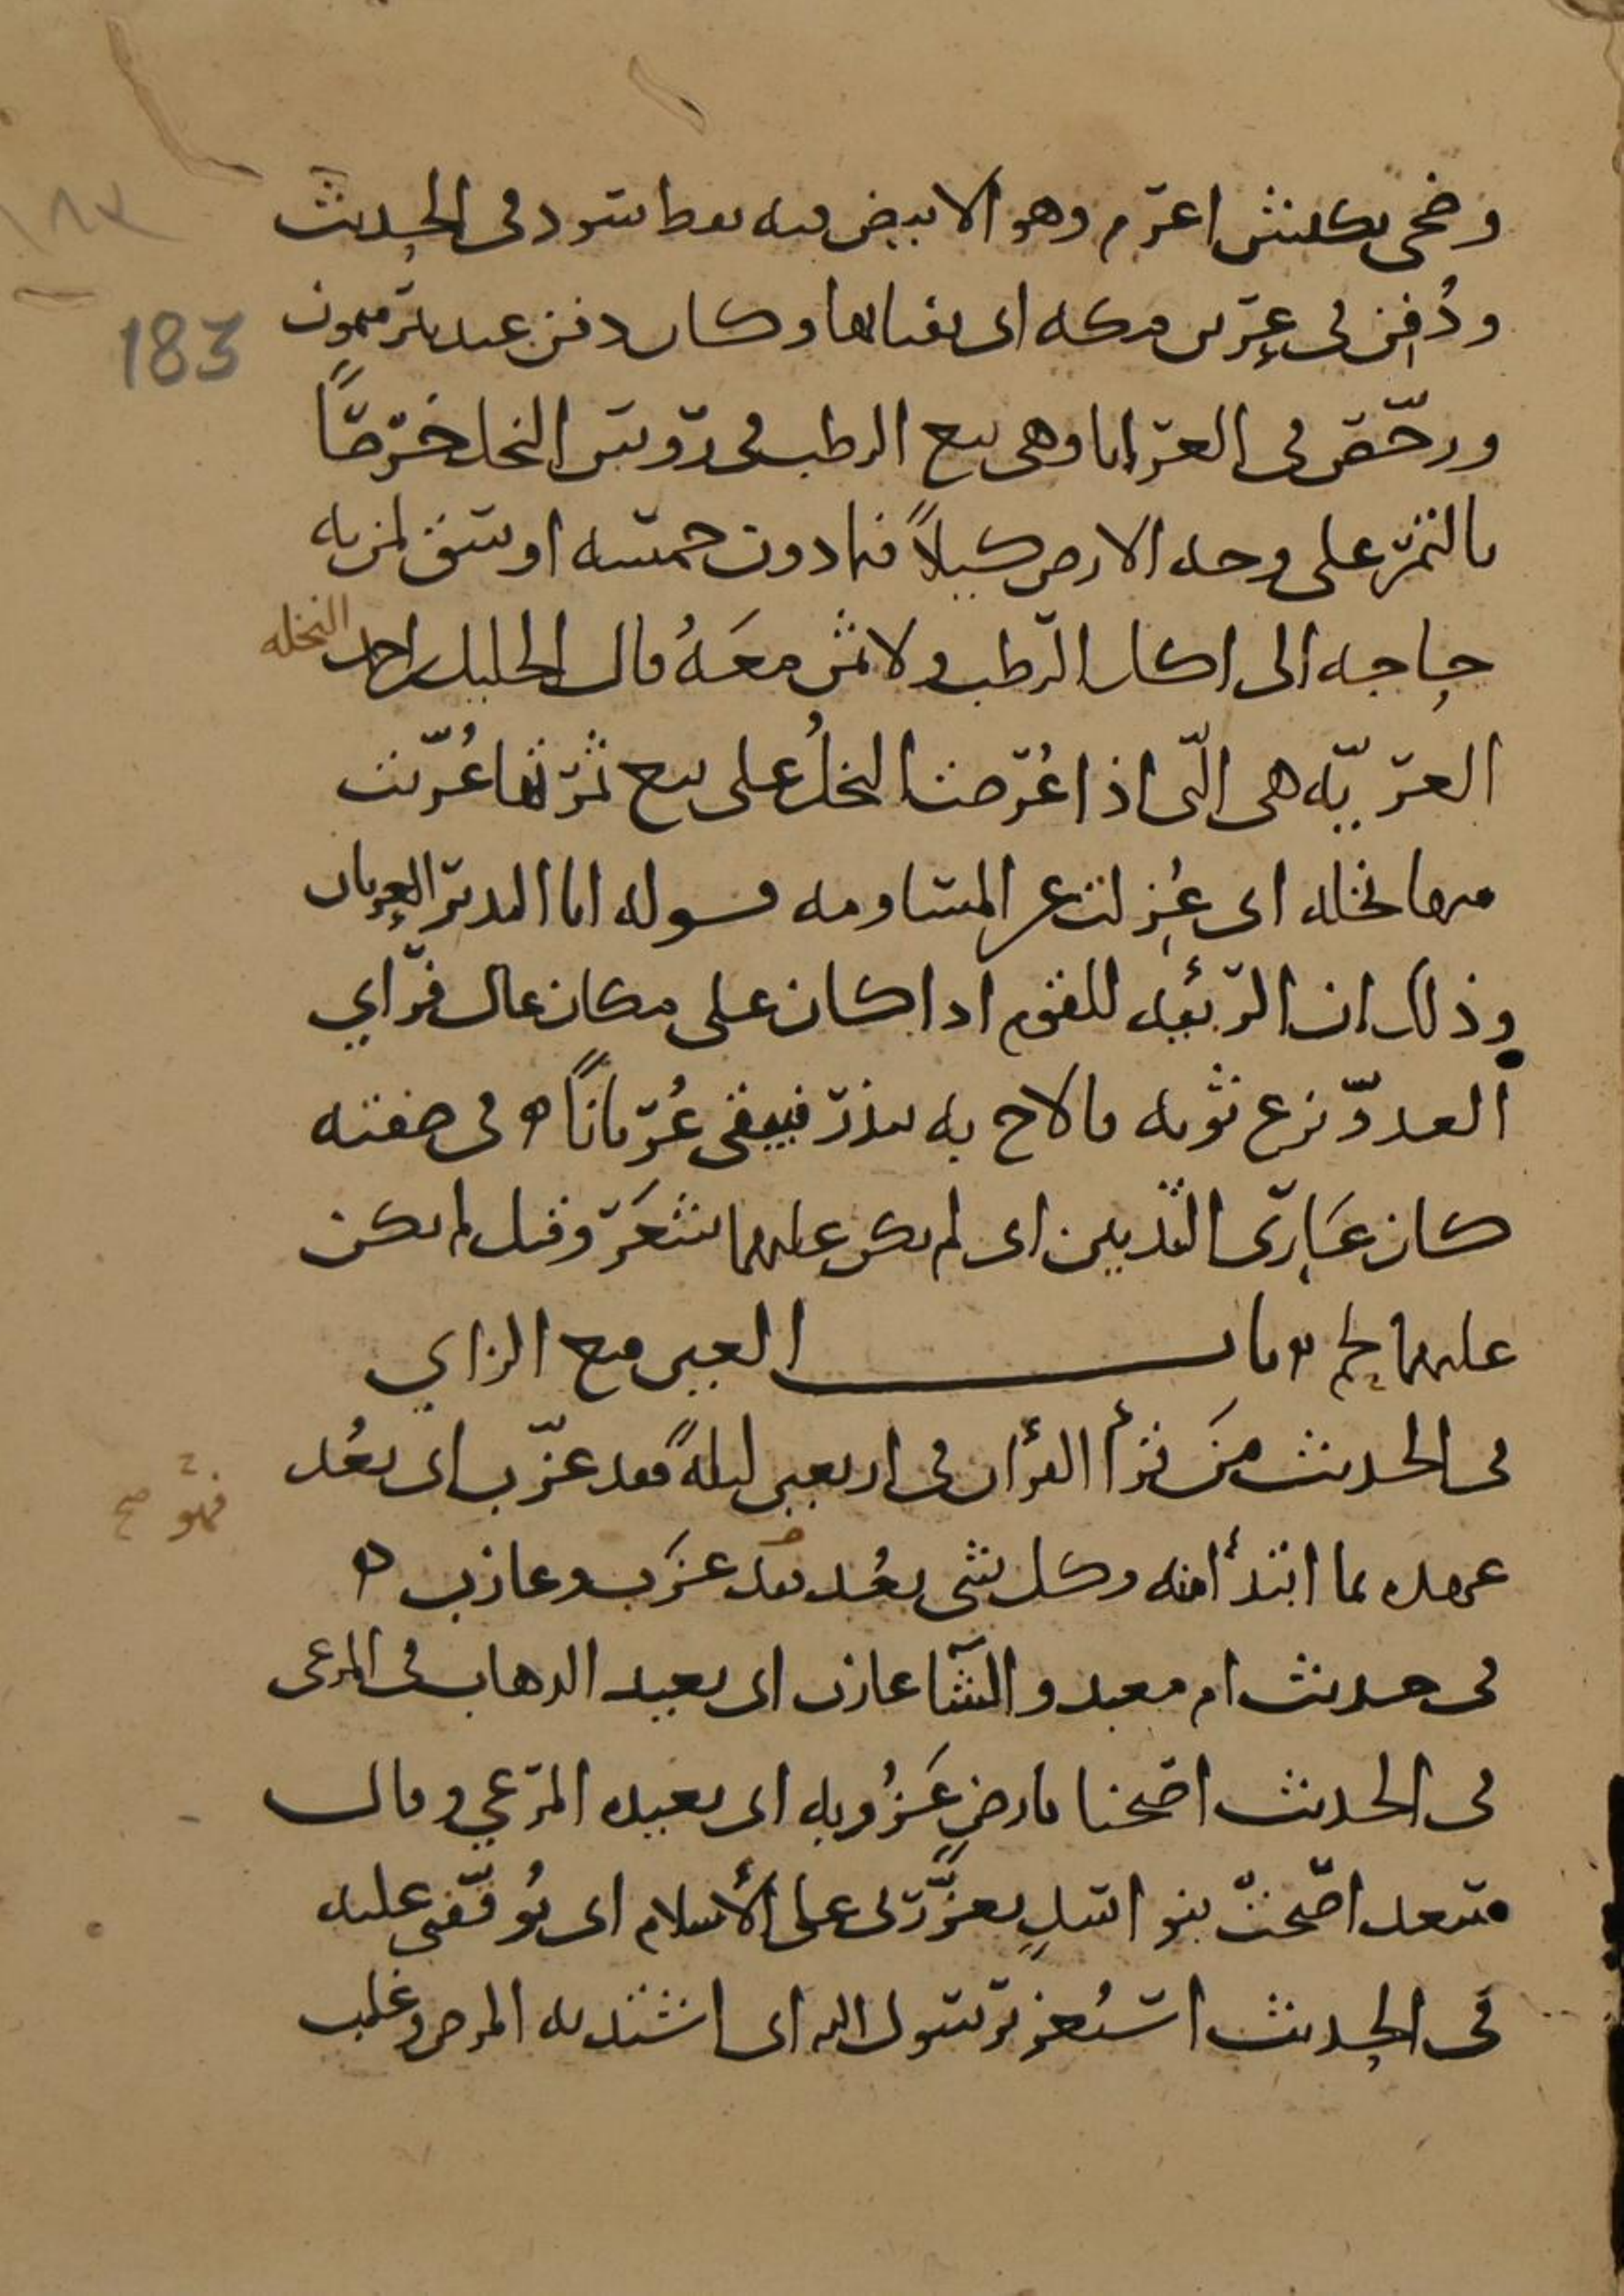 وضحى بكبش اعرم وهو الابيض فيه نقط سود في الحديث
ودُفِن في عِرين مكه اى بفنائها وكان دفن عند بئر ميمون
183
ورخّص في العرايا وهى بيع الرطب في رؤس النخل خرصًا
بالتمر على وجه الارض كيلاً فيما دون خمسه اوسق لمن به
حاجه الى اكل الرطب ولا ثمن معَهُ قال الخليل بن احمد النخله
العريّه هى الّتى اذا عُرضت النخلُ على بيع ثمرتها عُرّيت
منها نخله اى عُزلت عن المساومه قوله انا النذير العريان
وذلك ان الربئيه للقوم اذا كان على مكان عال فرأي
العدوّ نزع ثوبه فالاح به ينذر فيبقى عُريانًا ه في صفته
كان عَارى الثديين اى لم يكن عليهما شعَر وقيل لم يكن
عليهما لحم ه باب العين مع الزاي
في الحديث مَن قرأ القرأن في اربعين ليلةً فقد عزّب اى بعُد
فهو صح
عهده بما ابتدأ منه وكل شى بعُد فقد عزَب وعازب ه
في حديث ام معبد والشآ عازب اى بعيد الذهاب في المرعى
في الحديث اصبحنا بارضٍ عَزُوبه اى بعيده المرعي وقال
سعد اصبحتْ بنو اسدٍ تعزّرنى على الأسلام اى تُوقّفنى عليه
في الحديث استُعز برسول الله اى اشتد به المرض وغلب